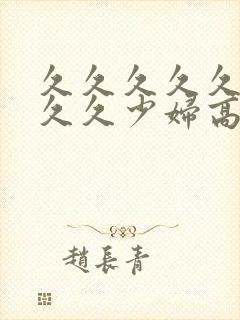 久久久久久
久久少婦高
趙長青